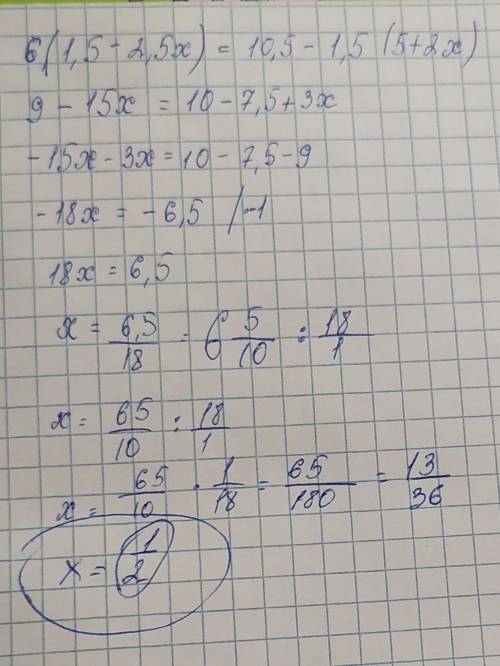 6(1,5 - 2,5x) = 10,5 - 1,5 (5+2x)
9 - 15x = 10 - 7,5 + 3x
-15x - 3x = 10 - 7,5 - 9
-18x = -6,5 /·-1
18x = 6,5
x = 6,5/18 = 6 5/10 : 18/1
x = 65/10 : 18/1
x = 65/10 · 1/18 = 65/180 = 13/36
x = 1/2